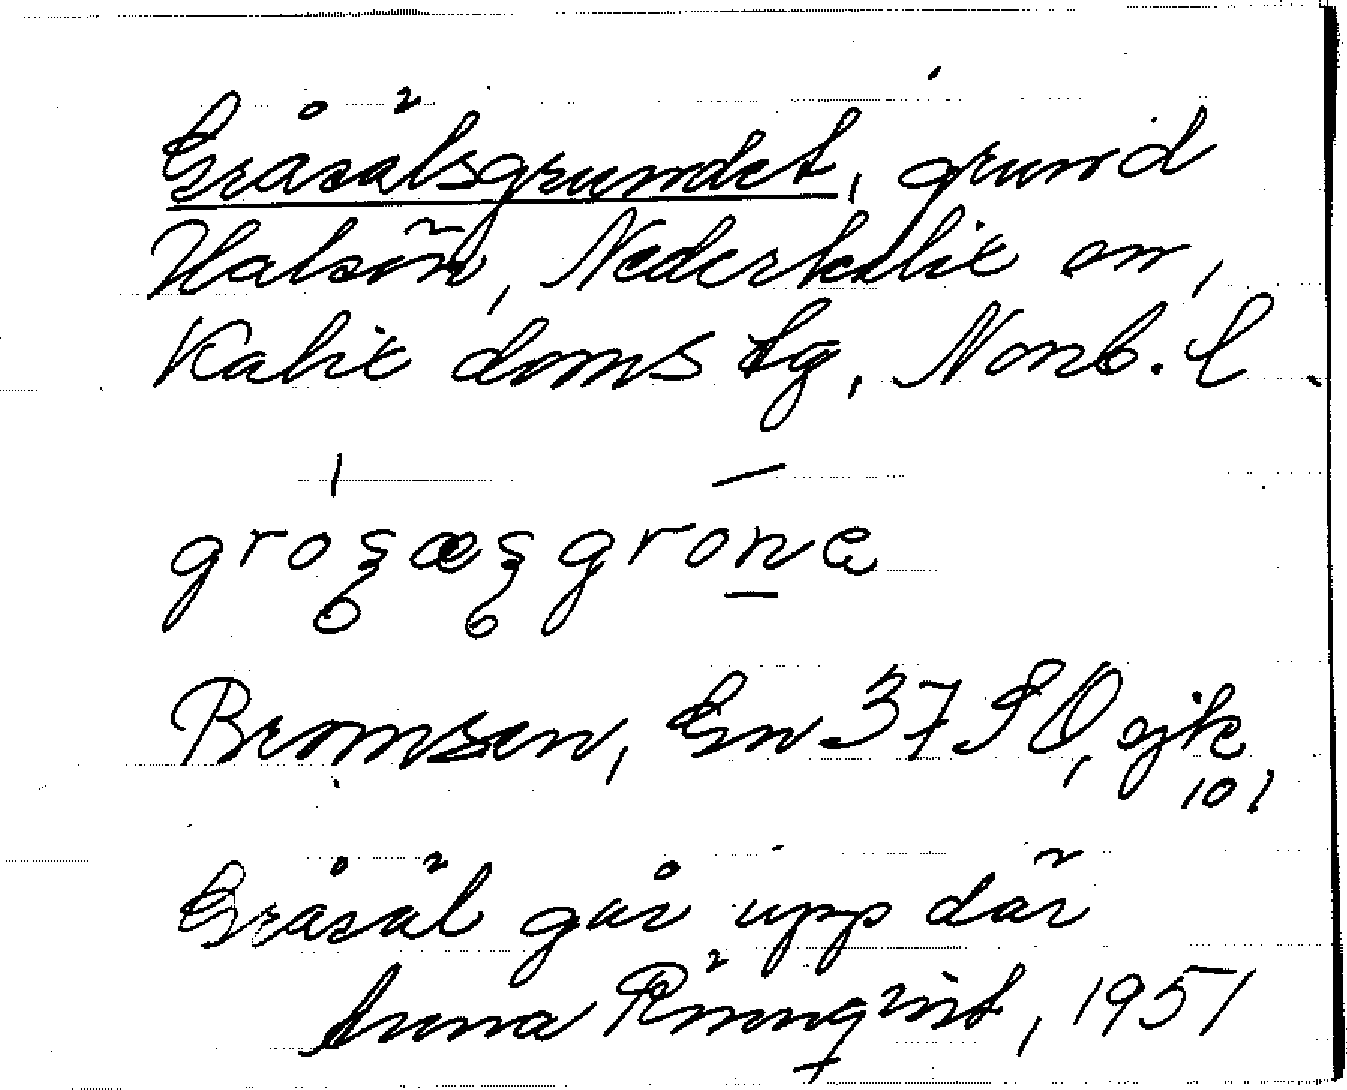 Gråsälsgrundet, grund
Halsön, Nederkalix sn,
Kalix doms tg, Norrb. l
groʂæʂgrone
Bromsen, Gn 37 SO, ejk
101
Gråsäl går upp där
Anna Rönnqvist, 1951